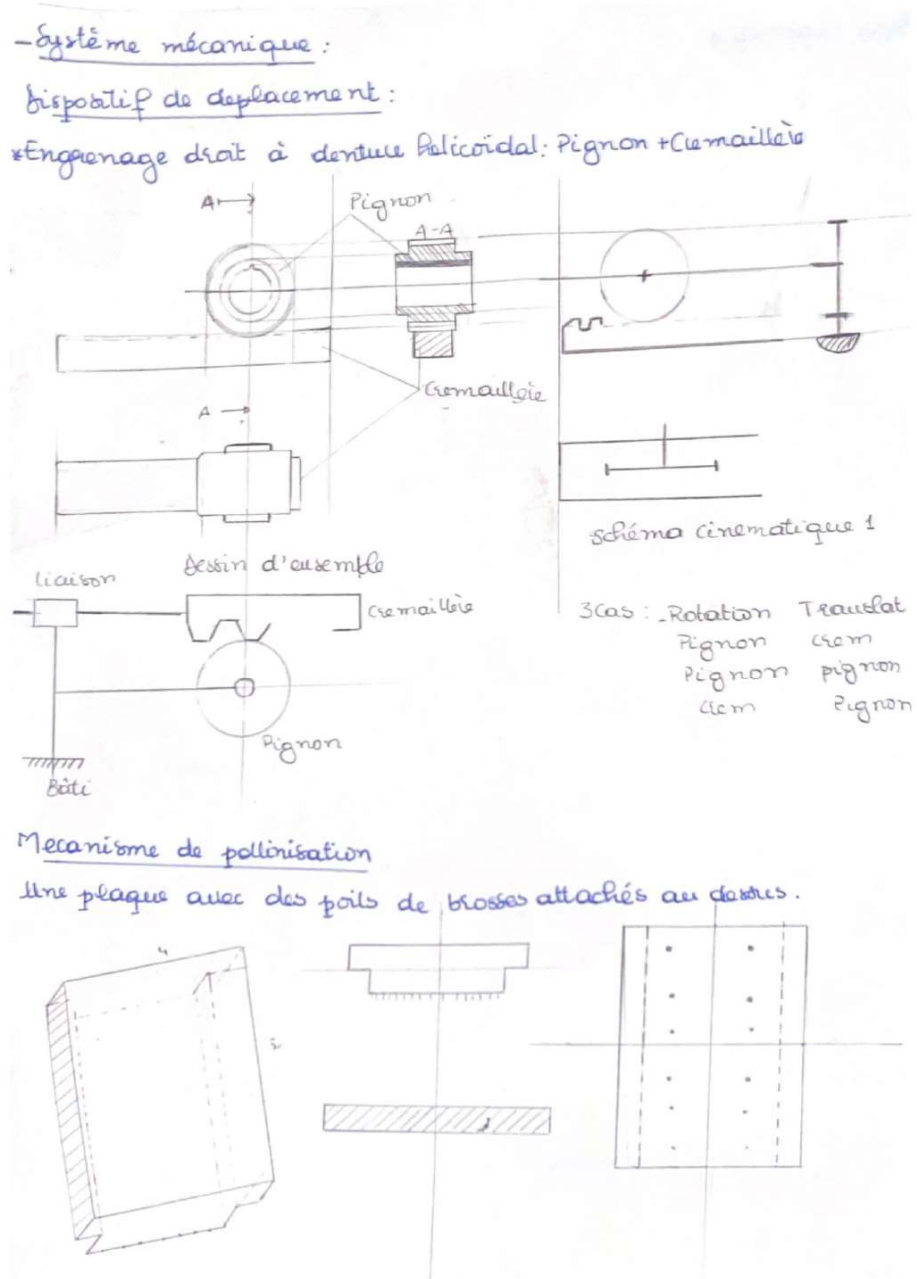 -Système mécanique :
Dispositif de deplacement :
*Engrenage droit à denture helicoïdal: Pignon + Cremaillère
A
Pignon
A-A
Cremaillère
A
schéma cinematique 1
Dessin d'ensemble
liaison
Cremaillère
3 Cas : - Rotation Translat
Pignon crem
Pignon pignon
crem Pignon
Pignon
Bâti
Mecanisme de pollinisation
Une plaque avec des poils de brosses attachés au dessus.
4
5